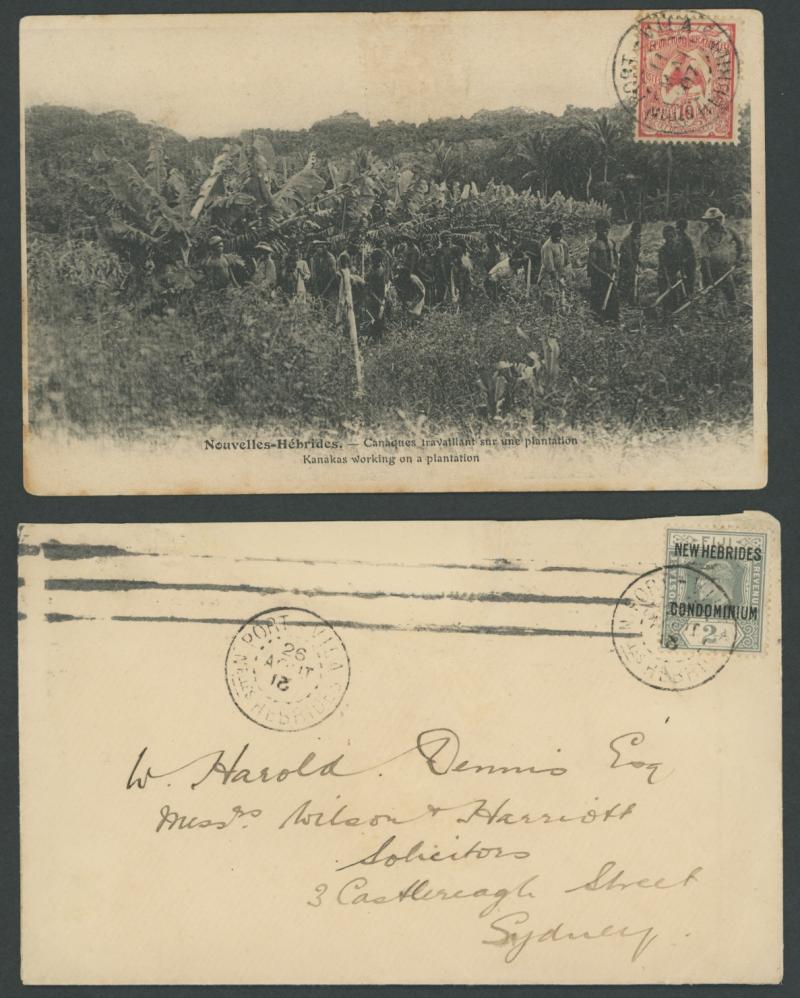 PORT-VILA
07
Nouvelles-Hébrides. — Canaques travaillant sur une plantation
Kanakas working on a plantation
FIJI
NEW HEBRIDES
CONDOMINIUM
2
PORT-VILA
26
AOUT
13
HEBRIDES
W. Harold. Dennis Esq
Messrs. Wilson & Harriott
Solicitors
3 Castlereagh Street
Sydney.